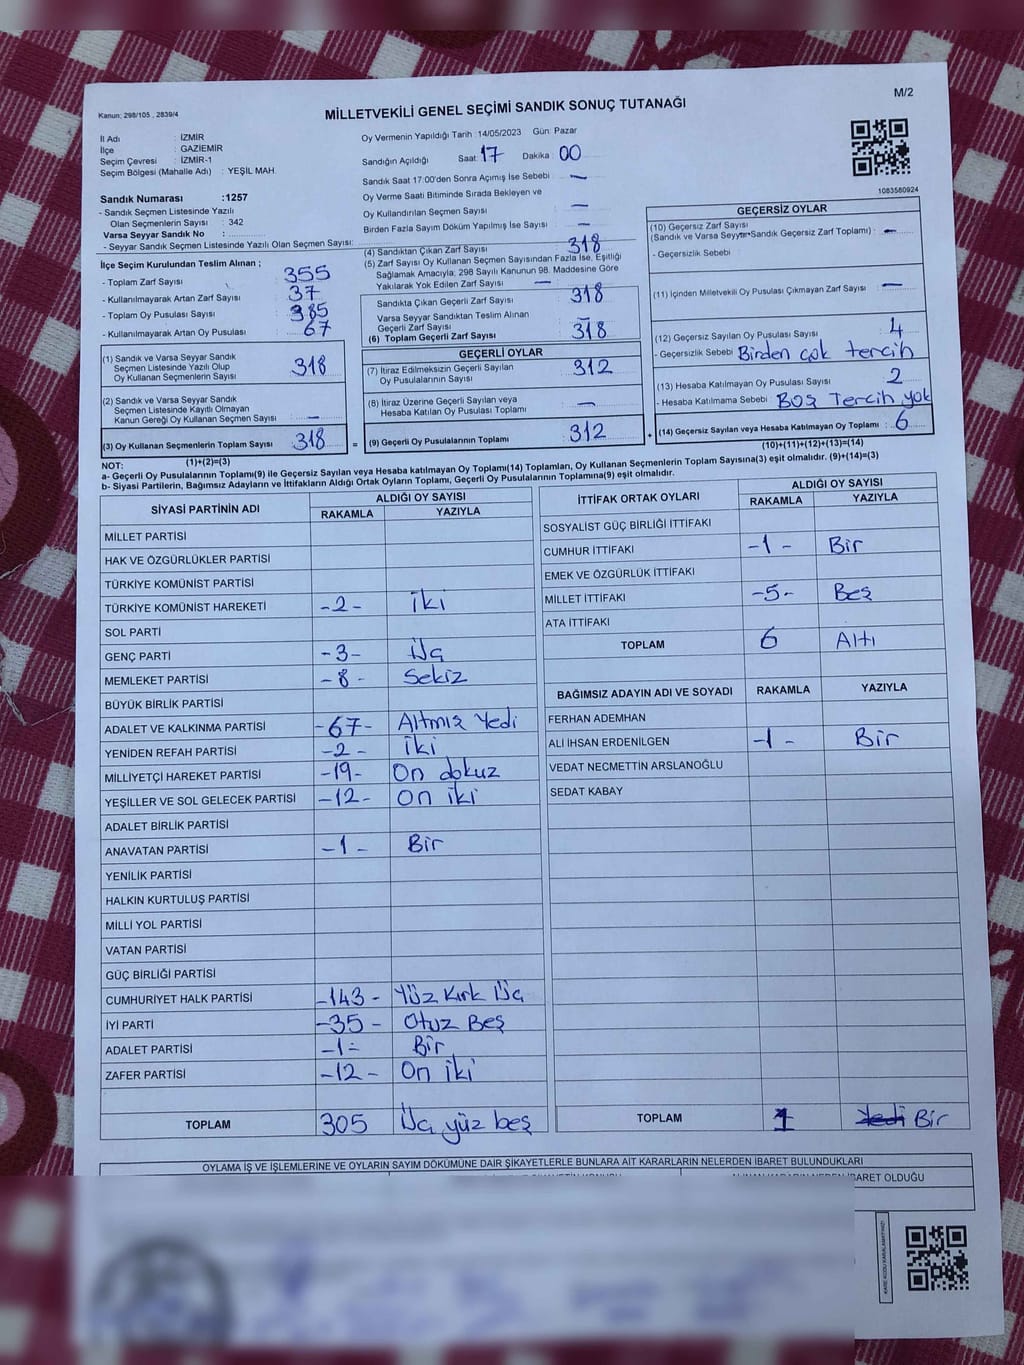 Kanun; 298/105 , 2839/4
MİLLETVEKİLİ GENEL SEÇİMİ SANDIK SONUÇ TUTANAĞI
M/2
İl Adı : İZMİR
İlçe : GAZİEMİR
Seçim Çevresi : İZMİR-1
Seçim Bölgesi (Mahalle Adı) : YEŞİL MAH.
Oy Vermenin Yapıldığı Tarih : 14/05/2023 Gün: Pazar
Sandığın Açıldığı Saat: 17 Dakika: 00
Sandık Saat 17:00'den Sonra Açımış İse Sebebi : —
Oy Verme Saati Bitiminde Sırada Bekleyen ve
Oy Kullandırılan Seçmen Sayısı : —
Birden Fazla Sayım Döküm Yapılmış İse Sayısı : —
1083580924
Sandık Numarası :1257
- Sandık Seçmen Listesinde Yazılı
Olan Seçmenlerin Sayısı : 342
Varsa Seyyar Sandık No :
- Seyyar Sandık Seçmen Listesinde Yazılı Olan Seçmen Sayısı:
İlçe Seçim Kurulundan Teslim Alınan ;
- Toplam Zarf Sayısı : 355
- Kullanılmayarak Artan Zarf Sayısı : 37
- Toplam Oy Pusulası Sayısı : 385
- Kullanılmayarak Artan Oy Pusulası : 67
(1) Sandık ve Varsa Seyyar Sandık
Seçmen Listesinde Yazılı Olup
Oy Kullanan Seçmenlerin Sayısı : 318
(2) Sandık ve Varsa Seyyar Sandık
Seçmen Listesinde Kayıtlı Olmayan
Kanun Gereği Oy Kullanan Seçmen Sayısı : —
(3) Oy Kullanan Seçmenlerin Toplam Sayısı : 318
(1)+(2)=(3)
(4) Sandıktan Çıkan Zarf Sayısı : 318
(5) Zarf Sayısı Oy Kullanan Seçmen Sayısından Fazla İse, Eşitliği
Sağlamak Amacıyla; 298 Sayılı Kanunun 98. Maddesine Göre
Yakılarak Yok Edilen Zarf Sayısı : —
Sandıkta Çıkan Geçerli Zarf Sayısı : 318
Varsa Seyyar Sandıktan Teslim Alınan
Geçerli Zarf Sayısı : —
(6) Toplam Geçerli Zarf Sayısı : 318
GEÇERLİ OYLAR
(7) İtiraz Edilmeksizin Geçerli Sayılan
Oy Pusulalarının Sayısı : 312
(8) İtiraz Üzerine Geçerli Sayılan veya
Hesaba Katılan Oy Pusulaları Toplamı : —
= (9) Geçerli Oy Pusulalarının Toplamı : 312
GEÇERSİZ OYLAR
(10) Geçersiz Zarf Sayısı
(Sandık ve Varsa Seyyar Sandık Geçersiz Zarf Toplamı) : —
- Geçersizlik Sebebi :
(11) İçinden Milletvekili Oy Pusulası Çıkmayan Zarf Sayısı : —
(12) Geçersiz Sayılan Oy Pusulası Sayısı : 4
- Geçersizlik Sebebi : Birden çok tercih
(13) Hesaba Katılmayan Oy Pusulası Sayısı : 2
- Hesaba Katılmama Sebebi : Boş Tercih yok
+ (14) Geçersiz Sayılan veya Hesaba Katılmayan Oy Toplamı : 6
(10)+(11)+(12)+(13)=(14)
NOT:
a- Geçerli Oy Pusulalarının Toplamı(9) ile Geçersiz Sayılan veya Hesaba katılmayan Oy Toplamı(14) Toplamları, Oy Kullanan Seçmenlerin Toplam Sayısına(3) eşit olmalıdır. (9)+(14)=(3)
b- Siyasi Partilerin, Bağımsız Adayların ve İttifakların Aldığı Ortak Oyların Toplamı, Geçerli Oy Pusulalarının Toplamına(9) eşit olmalıdır.
SİYASİ PARTİNİN ADI ALDIĞI OY SAYISI
RAKAMLA YAZIYLA
MİLLET PARTİSİ
HAK VE ÖZGÜRLÜKLER PARTİSİ
TÜRKİYE KOMÜNİST PARTİSİ
TÜRKİYE KOMÜNİST HAREKETİ -2- İki
SOL PARTİ
GENÇ PARTİ -3- Üç
MEMLEKET PARTİSİ -8- Sekiz
BÜYÜK BİRLİK PARTİSİ
ADALET VE KALKINMA PARTİSİ -67- Altmış Yedi
YENİDEN REFAH PARTİSİ -2- İki
MİLLİYETÇİ HAREKET PARTİSİ -19- On dokuz
YEŞİLLER VE SOL GELECEK PARTİSİ -12- On iki
ADALET BİRLİK PARTİSİ
ANAVATAN PARTİSİ -1- Bir
YENİLİK PARTİSİ
HALKIN KURTULUŞ PARTİSİ
MİLLİ YOL PARTİSİ
VATAN PARTİSİ
GÜÇ BİRLİĞİ PARTİSİ
CUMHURİYET HALK PARTİSİ -143- Yüz Kırk Üç
İYİ PARTİ -35- Otuz Beş
ADALET PARTİSİ -1- Bir
ZAFER PARTİSİ -12- On iki
TOPLAM 305 Üç yüz beş
İTTİFAK ORTAK OYLARI ALDIĞI OY SAYISI
RAKAMLA YAZIYLA
SOSYALİST GÜÇ BİRLİĞİ İTTİFAKI
CUMHUR İTTİFAKI -1- Bir
EMEK VE ÖZGÜRLÜK İTTİFAKI
MİLLET İTTİFAKI -5- Beş
ATA İTTİFAKI
TOPLAM 6 Altı
BAĞIMSIZ ADAYIN ADI VE SOYADI RAKAMLA YAZIYLA
FERHAN ADEMHAN
ALİ İHSAN ERDENİLGEN -1- Bir
VEDAT NECMETTİN ARSLANOĞLU
SEDAT KABAY
TOPLAM 1 Yedi Bir
OYLAMA İŞ VE İŞLEMLERİNE VE OYLARIN SAYIM DÖKÜMÜNE DAİR ŞİKAYETLERLE BUNLARA AİT KARARLARIN NELERDEN İBARET BULUNDUKLARI
İBARET OLDUĞU
KARE KODU KARALAMAYINIZ!